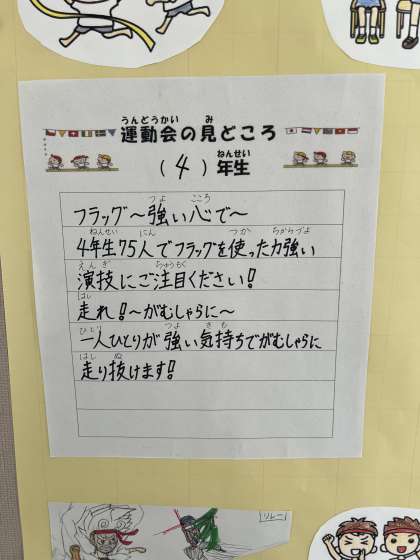 運動会の見どころ
(4)年生
フラッグ〜強い心で〜
4年生75人でフラッグを使った力強い
演技にご注目ください!
走れ!〜がむしゃらに〜
一人ひとりが強い気持ちでがむしゃらに
走り抜けます!
リレー